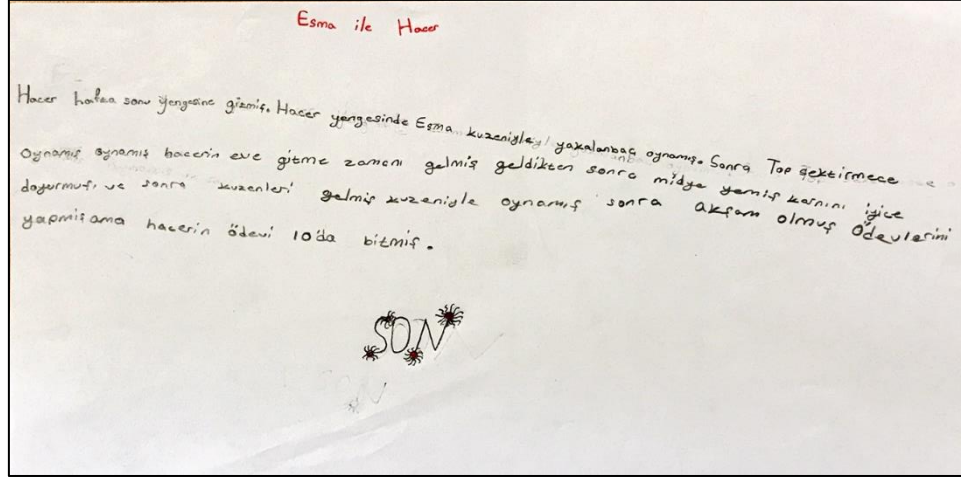 Esma ile Hacer
Hacer hafta sonu yengesine gizmiş. Hacer yengesinde Esma kuzeniyle yakalanbaç oynamış. Sonra Top sektirmece
oynamış oynamış hacerin eve gitme zamanı gelmiş geldikten sonra midye yemiş karnını iyice
doyurmuş. ve sonra kuzenleri gelmiş kuzeniyle oynamış sonra akşam olmuş ödevlerini
yapmış ama hacerin ödevi 10'da bitmiş.
SON